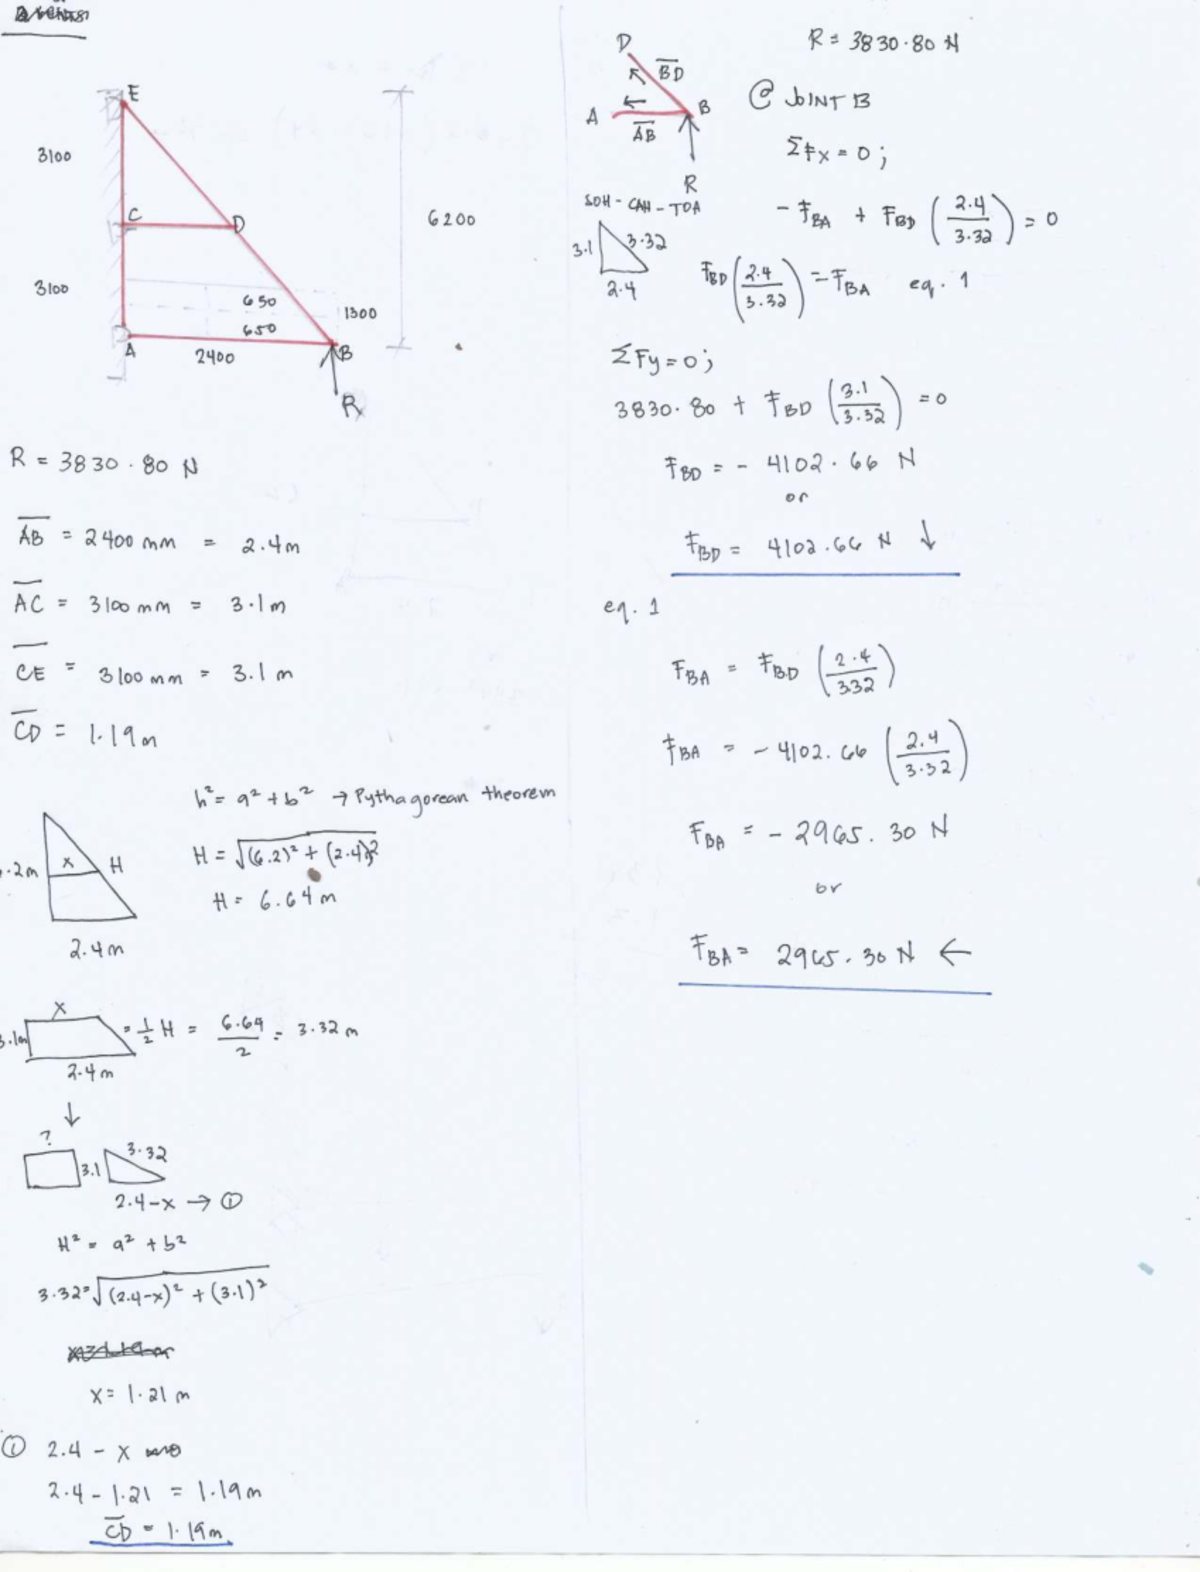 E
3100
C
D
6200
3100
650
650
1300
A
2400
B
R
R = 3830.80 N
AB = 2400 mm = 2.4 m
AC = 3100 mm = 3.1 m
CE = 3100 mm = 3.1 m
CD = 1.19 m
h² = a² + b² → Pythagorean theorem
H = √(6.2)² + (2.4)²
H = 6.64 m
.2m
x
H
2.4 m
x
3.1m
= 1/2 H = 6.64/2 = 3.32 m
2.4 m
↓
?
3.1
3.32
2.4-x → ①
H² = a² + b²
3.32 = √(2.4-x)² + (3.1)²
x = 1.21 m
① 2.4 - x
2.4 - 1.21 = 1.19 m
CD = 1.19 m
R = 3830.80 N
D
BD
A
AB
B
R
@ JOINT B
ΣFx = 0 ;
SOH - CAH - TOA
3.1
3.32
2.4
- FBA + FBD (2.4/3.32) = 0
FBD (2.4/3.32) = FBA eq. 1
ΣFy = 0 ;
3830.80 + FBD (3.1/3.32) = 0
FBD = - 4102.66 N
or
FBD = 4102.66 N ↓
eq. 1
FBA = FBD (2.4/3.32)
FBA = - 4102.66 (2.4/3.32)
FBA = - 2965.30 N
or
FBA = 2965.30 N ←